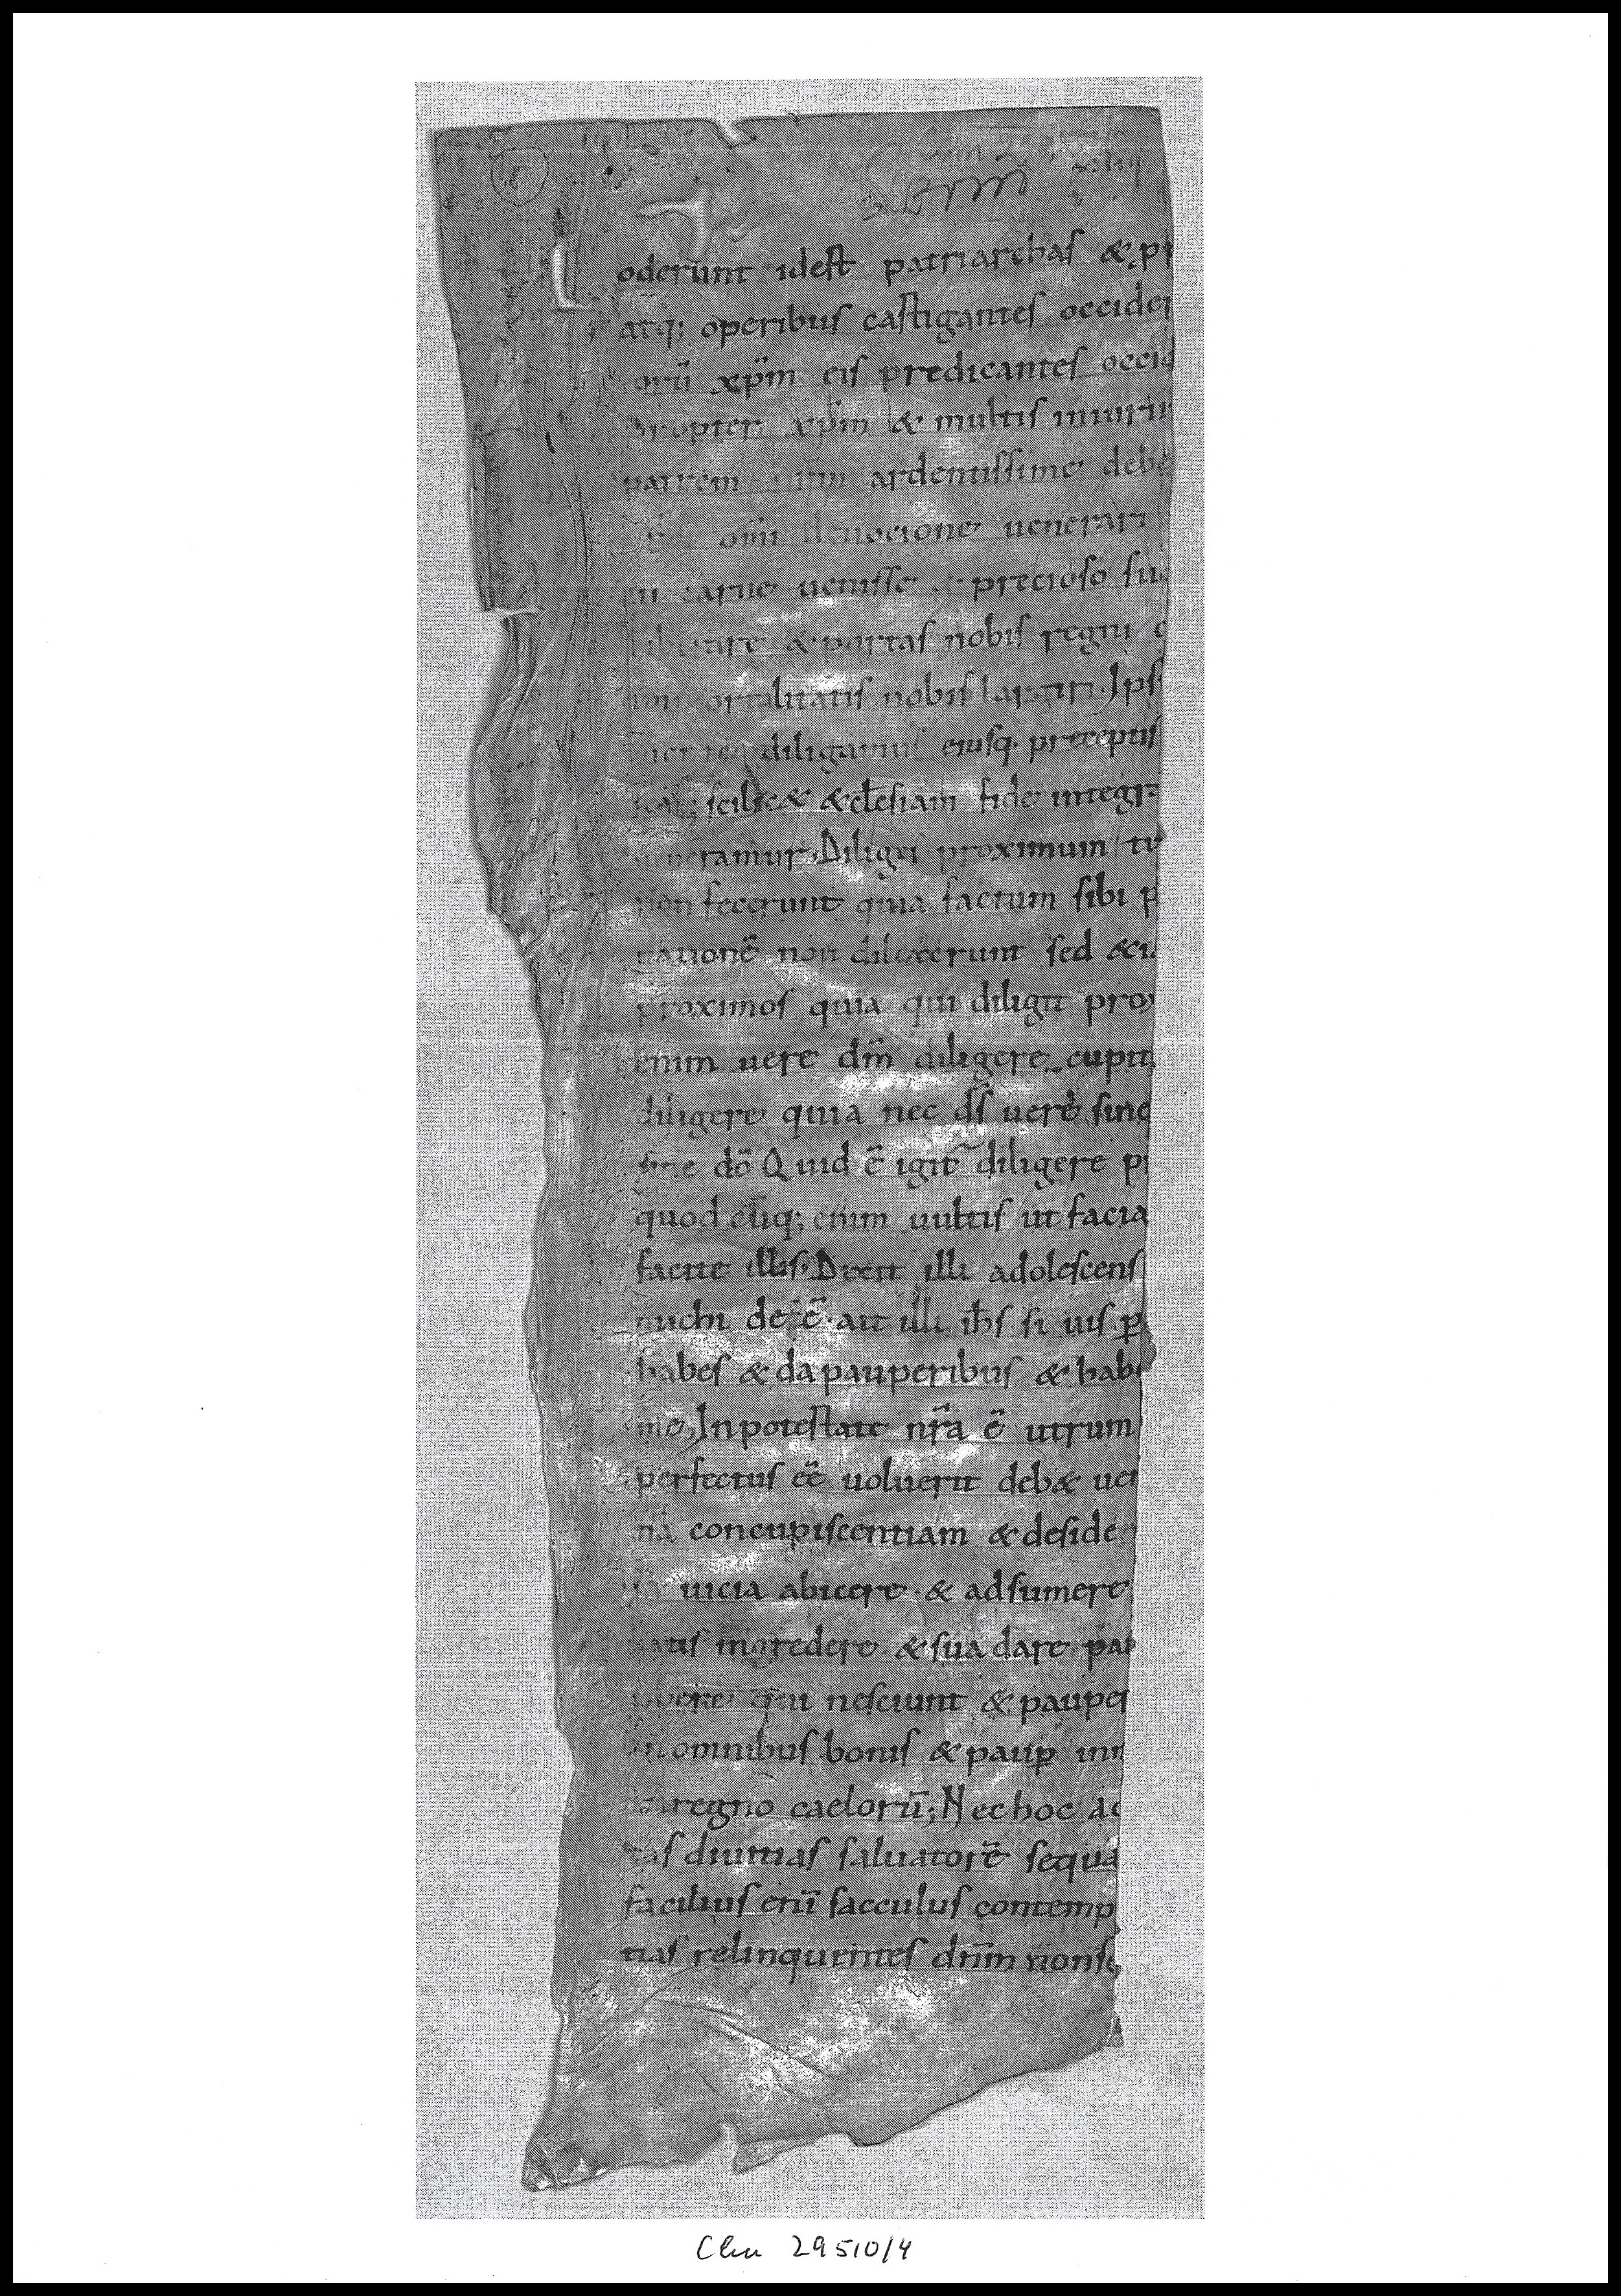 oderunt idest patriarchas & pr
atq; operibus castigantes occider
orū xp̄m eis predicantes occid
propter xp̄m & multis iniuri
patrem ardentissime debe
om̄i deuocione uenerari
carne uenisse & precioso su
& portas nobis regni c
nobis lartiri. Ips
diligamus eiusq. preceptis
scilic& & ecl̄esiam fide integra
Diliges proximum tu
non fecerunt quia factum sibi p
nationē non dilexerunt sed & i
proximos quia qui diligit prox
enim uere dm̄ diligere cupit
diligere quia nec ds̄ uere sine
sine dō Quid ē igit̃ diligere p
quod cūq; enim uultis ut facia
facite illis. Dicit illi adolescens
michi deē. ait illi ihs̄ si uis ꝑ
habes & da pauperibus & habe
me; In potestate nr̄a ē utrum
perfectus eē uoluerit deb& ue
nā concupiscentiam & deside
uicia abicere & adsumere
ingredere & sua dare pau
qui nesciunt & pauper
in omnibus bonis & pauꝑ inr
regno caelorū; Nec hoc ad
tas diuitias saluatorē sequa
facilius enī sacculus contemp
tias relinquentes dn̄m non se
Clm 29510/4